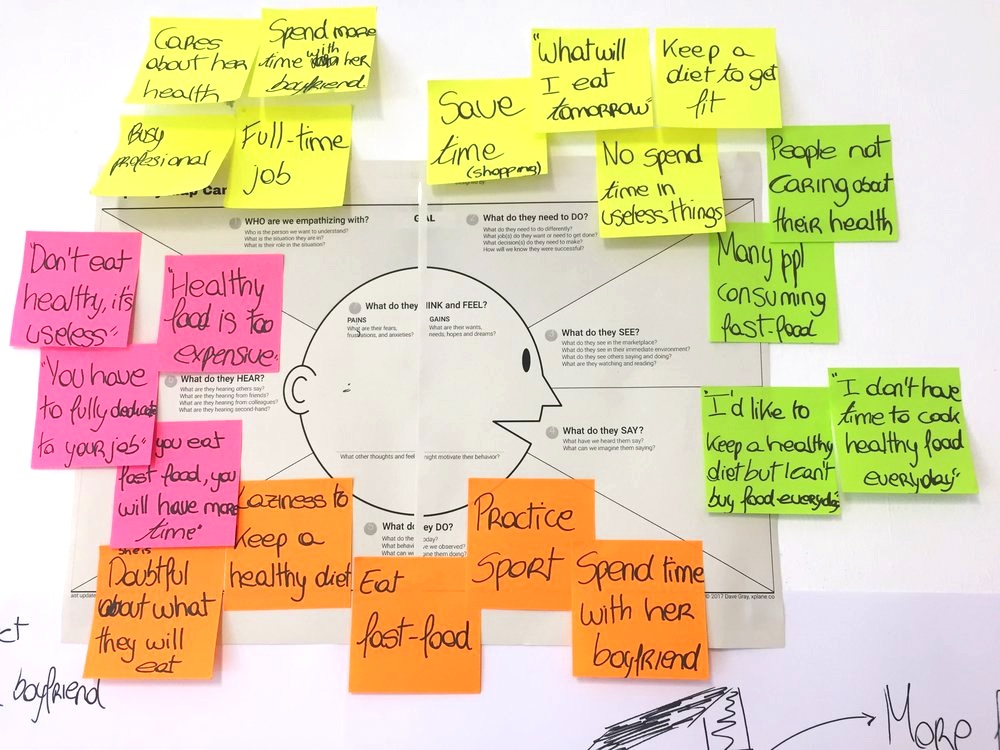 Cares
about her
health
Spend more
time with her
boyfriend.
Busy
profesional
Full-time
job
Save
time
(shopping)
"What will
I eat
tomorrow"
Keep a
diet to get
fit
No spend
time in
useless things
People not
caring about
their health
Many ppl
consuming
fast-food
"Don't eat
healthy, it's
useless"
"Healthy
food is too
expensive.
"You have
to fully dedicate
to your job"
you eat
fast food, you
will have more
time"
"I'd like to
keep a healthy
diet but I can't
buy food everyday"
"I don't have
time to cook
healthy food
everyday"
She is
Doubtful
about what
they will
eat
Laziness to
keep a
healthy diet
Eat
fast-food
Practice
sport
Spend time
with her
boyfriend
WHO are we empathizing with?
Who is the person we want to understand?
What is the situation they are in?
What is their role in the situation?
GOAL
What do they need to DO?
What do they need to do differently?
What job(s) do they want or need to get done?
What decision(s) do they need to make?
How will we know they were successful?
What do they SEE?
What do they see in the marketplace?
What do they see in their immediate environment?
What do they see others saying and doing?
What are they watching and reading?
What do they SAY?
What have we heard them say?
What can we imagine them saying?
What do they HEAR?
What are they hearing others say?
What are they hearing from friends?
What are they hearing from colleagues?
What are they hearing second-hand?
What do they HINK and FEEL?
PAINS
What are their fears,
frustrations, and anxieties?
GAINS
What are their wants,
needs, hopes and dreams?
What other thoughts and feel might motivate their behavior?
What do ey DO?
© 2017 Dave Gray, xplane.co
boyfriend